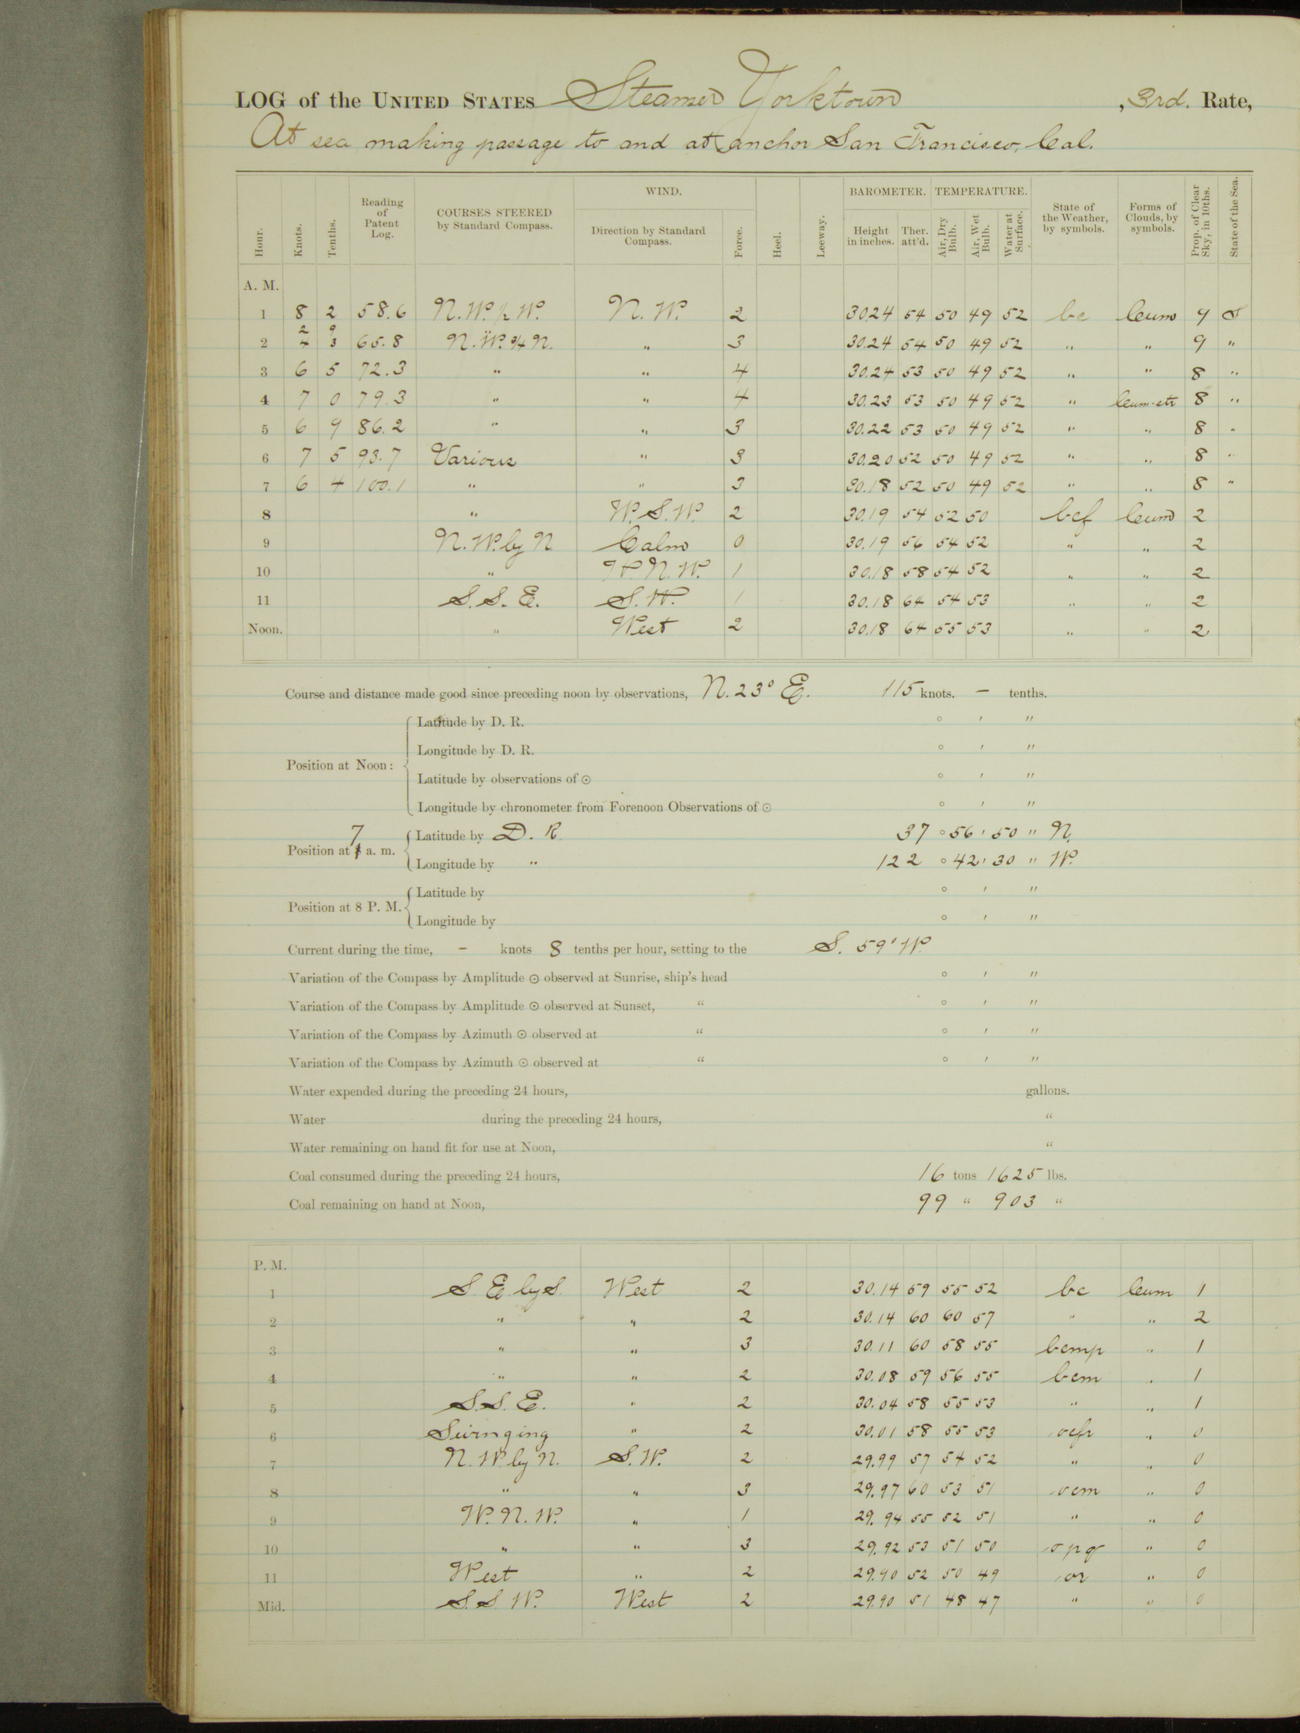 LOG of the UNITED STATES Steamer Yorktown , 3rd. Rate,
At sea making passage to and at anchor San Francisco, Cal.
Hour. Knots. Tenths. Reading of Patent Log. COURSES STEERED by Standard Compass. WIND. Direction by Standard Compass. Force. Heel. Leeway. BAROMETER. Height in inches. Ther. att'd. TEMPERATURE. Air, Dry Bulb. Air, Wet Bulb. Water at Surface. State of the Weather, by symbols. Forms of Clouds, by symbols. Prop. of Clear Sky, in 10ths. State of the Sea.
A. M.
1 8 2 58.6 N.W. N.W. 2 30.24 54 50 49 52 bc Cum 9 S
2 65.8 N.W. ¾ N. " 3 30.24 54 50 49 52 " " 9 "
3 6 5 72.3 " " 4 30.24 53 50 49 52 " " 8 "
4 7 0 79.3 " " 4 30.23 53 50 49 52 " Cum-str 8 "
5 6 9 86.2 " " 3 30.22 53 50 49 52 " " 8 "
6 7 5 93.7 Various " 3 30.20 52 50 49 52 " " 8 "
7 6 4 100.1 " " 3 30.18 52 50 49 52 " " 8 "
8 " W.S.W. 2 30.19 54 52 50 bcf Cum 2
9 N.W. by N Calm 0 30.19 56 54 52 " " 2
10 " W.N.W. 1 30.18 58 54 52 " " 2
11 S.S.E. S.W. 1 30.18 64 54 53 " " 2
Noon. " West 2 30.18 64 55 53 " " 2
Course and distance made good since preceding noon by observations, N. 23° E. 115 knots. — tenths.
Position at Noon: Latitude by D. R. ° ′ ″
Longitude by D. R. ° ′ ″
Latitude by observations of ☉ ° ′ ″
Longitude by chronometer from Forenoon Observations of ☉ ° ′ ″
Position at 7 a. m. Latitude by D. R. 37 ° 56 ′ 50 ″ N.
Longitude by " 122 ° 42 ′ 30 ″ W.
Position at 8 P. M. Latitude by ° ′ ″
Longitude by ° ′ ″
Current during the time, — knots 8 tenths per hour, setting to the S. 59° W.
Variation of the Compass by Amplitude ☉ observed at Sunrise, ship's head ° ′ ″
Variation of the Compass by Amplitude ☉ observed at Sunset, " ° ′ ″
Variation of the Compass by Azimuth ☉ observed at " ° ′ ″
Variation of the Compass by Azimuth ☉ observed at " ° ′ ″
Water expended during the preceding 24 hours, gallons.
Water during the preceding 24 hours, "
Water remaining on hand fit for use at Noon, "
Coal consumed during the preceding 24 hours, 16 tons 1625 lbs.
Coal remaining on hand at Noon, 99 " 903 "
P. M.
1 S.E. by S. West 2 30.14 59 55 52 bc Cum 1
2 " " 2 30.14 60 60 57 " " 2
3 " " 3 30.11 60 58 55 bcmp " 1
4 " " 2 30.08 59 56 55 bcm " 1
5 S.S.E. " 2 30.04 58 55 53 " " 1
6 Swinging " 2 30.01 58 55 53 " 0
7 N.W. by N. S.W. 2 29.99 57 54 52 " " 0
8 " " 3 29.97 60 53 51 ocm " 0
9 W.N.W. " 1 29.94 55 52 51 " " 0
10 " " 3 29.92 53 51 50 opq " 0
11 West " 2 29.90 52 50 49 or " 0
Mid. S.S.W. West 2 29.90 51 48 47 " " 0